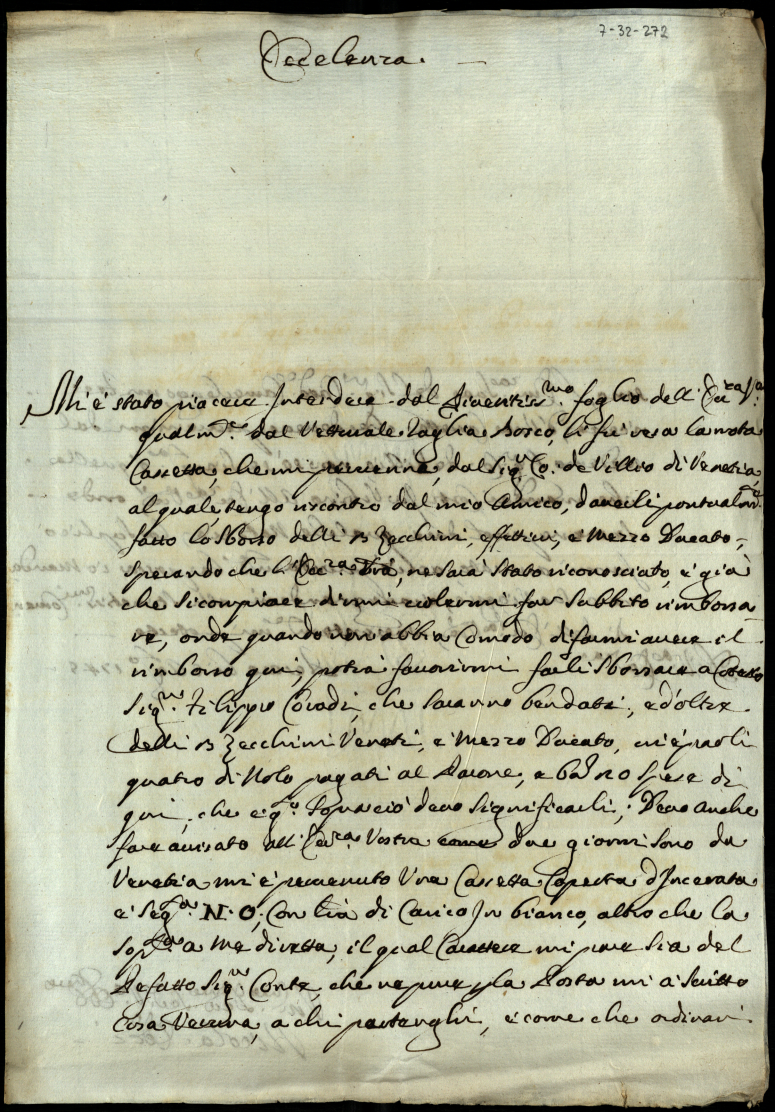 7-32-272
Eccelenza.
Mi é stato piacere Intendere dal Riveritiss.mo foglio dell' Ecc.za V.a
qualm.te dal Vetturale Taglia Bosco, li fù resa la nota
Cassetta, che mi pervenne, dal Sig.r Co. de Villio di Venetia,
al quale tengo riscontro dal mio Amico, d'averli pontualm.te
fatto lo Sborso delli 13 Zecchini, effettivi, e Mezzo Ducato,
sperando che l'Ecc.za Vrã, ne sarà stato riconosciuto, e già
che si compiace di mi volermi far Subbito rimborsa
re, onde quando non abbia Comodo di farmi avere il
rimborso qui, potrà favorirmi farli Sborsare a Cotesto
Sig.re Filippo Coradi, che saranno bendati, e d'oltre
delli 13 Zecchini Veneti, e Mezzo Ducato, vi é paoli
quatro di Nolo pagati al Parone, e ba 20 spese di
qui, che p. sig.o Ignacio devo significarli; Devo anche
fare avisato all' Ecc.za Vostra come due giorni sono da
Venetia mi é pervenuto Una Cassetta Coperta d'Incerata
e Seg.ta N. O, Con lrã di Carico In bianco, altro che la
sop.ta a Me diretta, il qual Carattere mi pare Sia del
Defatto Sig.re Conte, che ne pure p la Posta mi à Scritto
Cosa Veruna, a chi partenghi, e come che ordinari